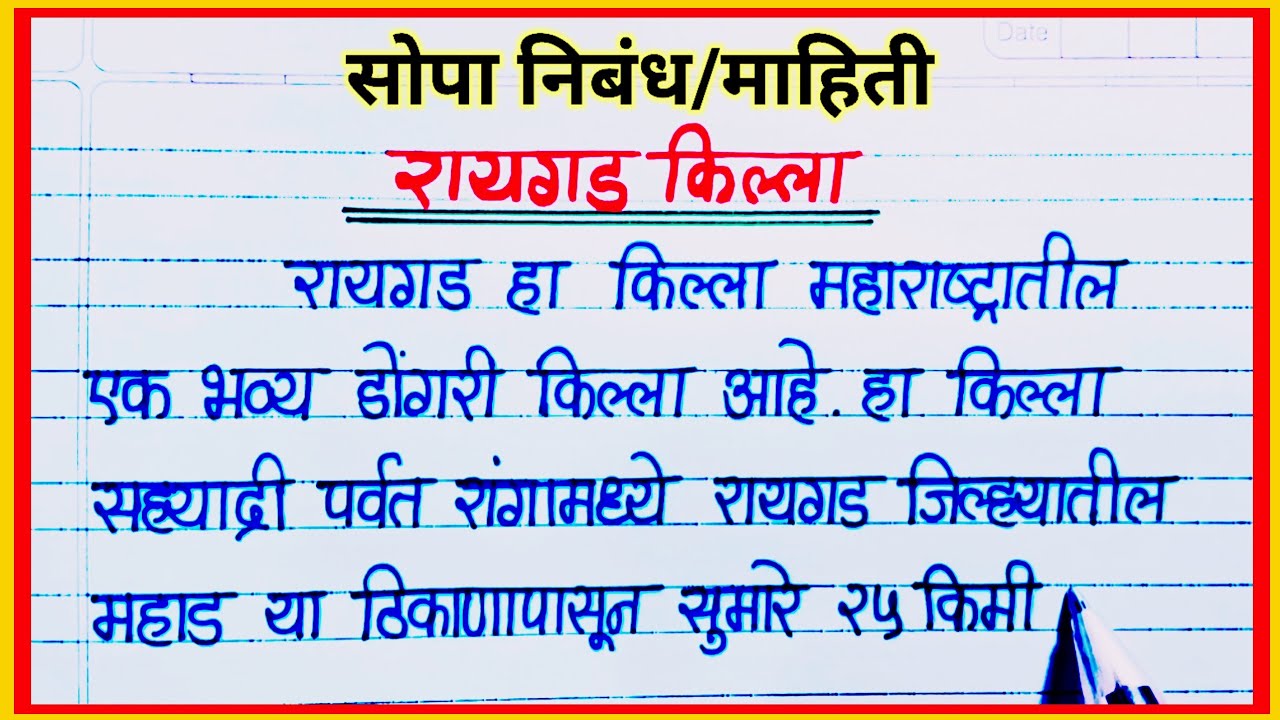 Date
सोपा निबंध/माहिती
रायगड किल्ला
रायगड हा किल्ला महाराष्ट्रातील
एक भव्य डोंगरी किल्ला आहे. हा किल्ला
सह्याद्री पर्वत रांगामध्ये रायगड जिल्ह्यातील
महाड या ठिकाणापासून सुमारे २५ किमी